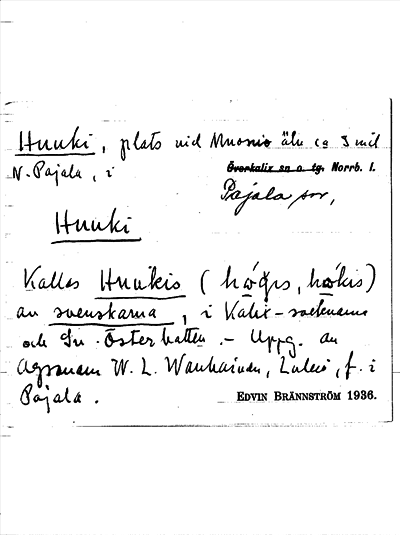 Huuki, plats vid Muonio älv ca 3 mil
N. Pajala, i
Överkalix sn o. tg. Norrb. l.
Pajala sn,
Huuki
Kallas Huukis (
av svenskarna, i Kalix-
och . - Uppg. av
Agronom W. L. Wanhainen, Luleå, f. i
Pajala.
EDVIN BRÄNNSTRÖM 1936.